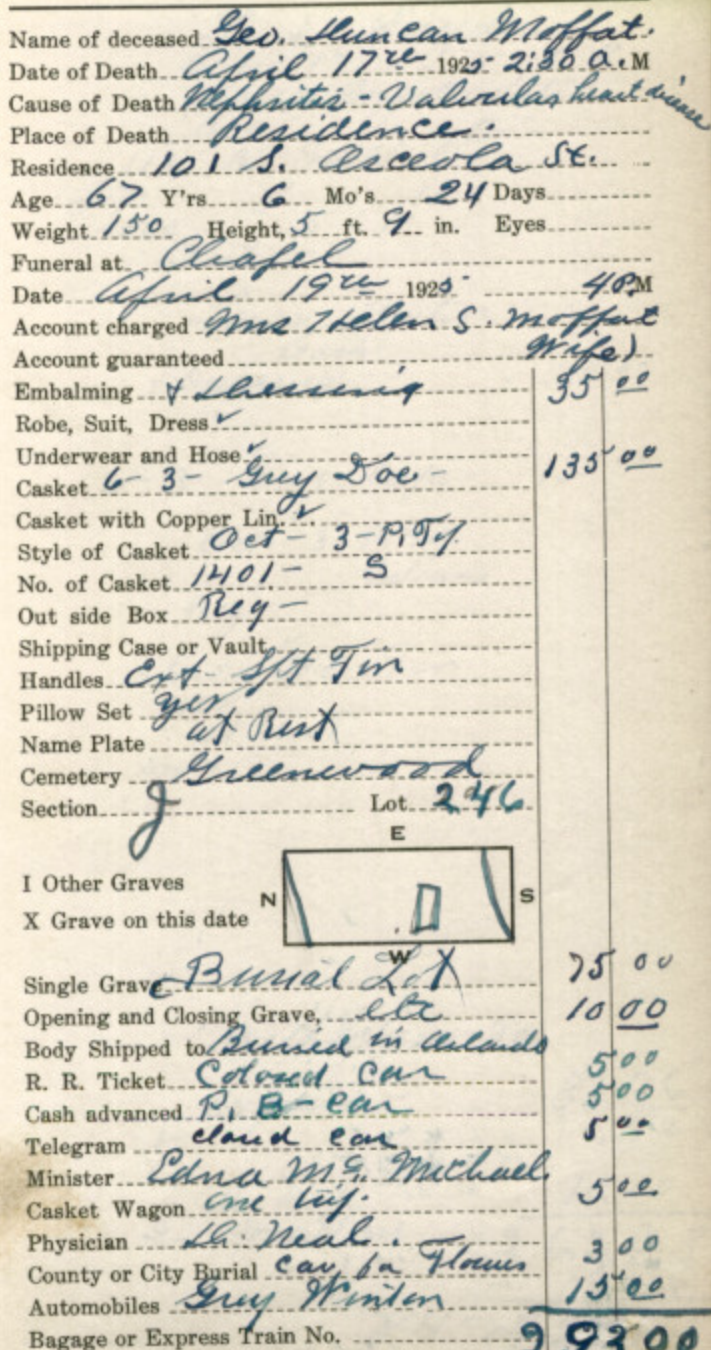 Name of deceased Geo. Duncan Moffat.
Date of Death April 17th 1925 2:30 a.M
Cause of Death Nephritis - Valvular heart disease
Place of Death Residence.
Residence 101 S. Osceola St.
Age 67 Y'rs 6 Mo's 24 Days
Weight 150 Height, 5 ft. 9 in. Eyes
Funeral at Chapel
Date April 19th 1925 4 PM
Account charged Mrs Helen S. Moffat
Account guaranteed Wife)
Embalming & Dressing 35 00
Robe, Suit, Dress ✓
Underwear and Hose ✓
Casket 6-3- Grey Doe - 135 00
Casket with Copper Lin. ✓
Style of Casket Oct- 3-P.
No. of Casket 1401- S
Out side Box Reg -
Shipping Case or Vault
Handles Ext Tin
Pillow Set yes
Name Plate at Rest
Cemetery Greenwood
Section J Lot 246
E
I Other Graves
N S
X Grave on this date
W
Single Grave Burial Lot 75 00
Opening and Closing Grave, etc 10 00
Body Shipped to Buried in Orlando
R. R. Ticket Closed Car 5 00
Cash advanced P. B- car 5 00
Telegram closed car 5 00
Minister Edna Mc. Michael
Casket Wagon one 5 00
Physician Dr. Neal. -
County or City Burial car for Flowers 3 00
Automobiles Grey Winton 15 00
Bagage or Express Train No. 293 00